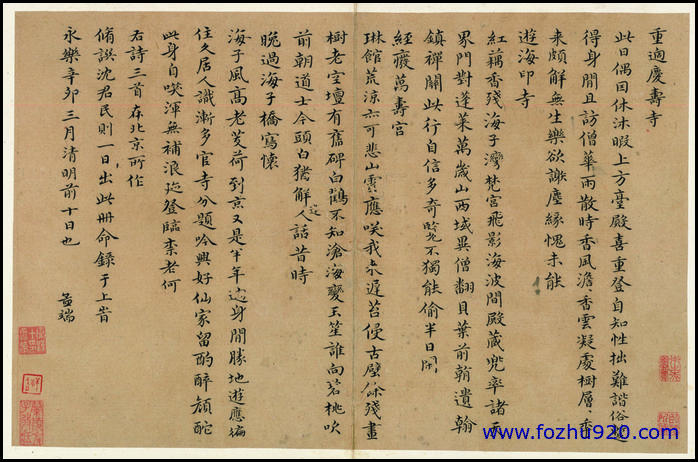 重過慶壽寺
此日偶因休沐暇上方臺殿喜重登自知性拙難諧俗
得身閒且訪僧華雨散時香風澹香雲凝處樹層香
來頗解無生樂欲謝塵緣愧未能
遊海印寺
紅藕香殘海子灣梵宮飛影海波間殿藏兜率諸天
界門對蓬萊萬歲山西域異僧翻貝葉前翰遺翰
鎮禪關此行自信多奇 不獨能偷半日閒
經廢萬壽宮
琳館荒涼亦可悲山雲應笑我來遲苔侵古壁餘殘畫
樹老空壇有舊碑白鶴不知滄海變玉笙誰向碧桃吹
前朝道士今頭白猶解人話昔時
晚過海子橋寫懷
海子風高老芰荷到京又是半年過身閒勝地遊應徧
住久居人識漸多官寺分題吟興好仙家留酌醉顏酡
此身自笑渾無補浪跡登臨柰老何
右詩三首在北京所作
脩譔沈君民則一日出此冊命錄于上時
永樂辛卯三月清明前十日也
孟端
www.fozhu920.com